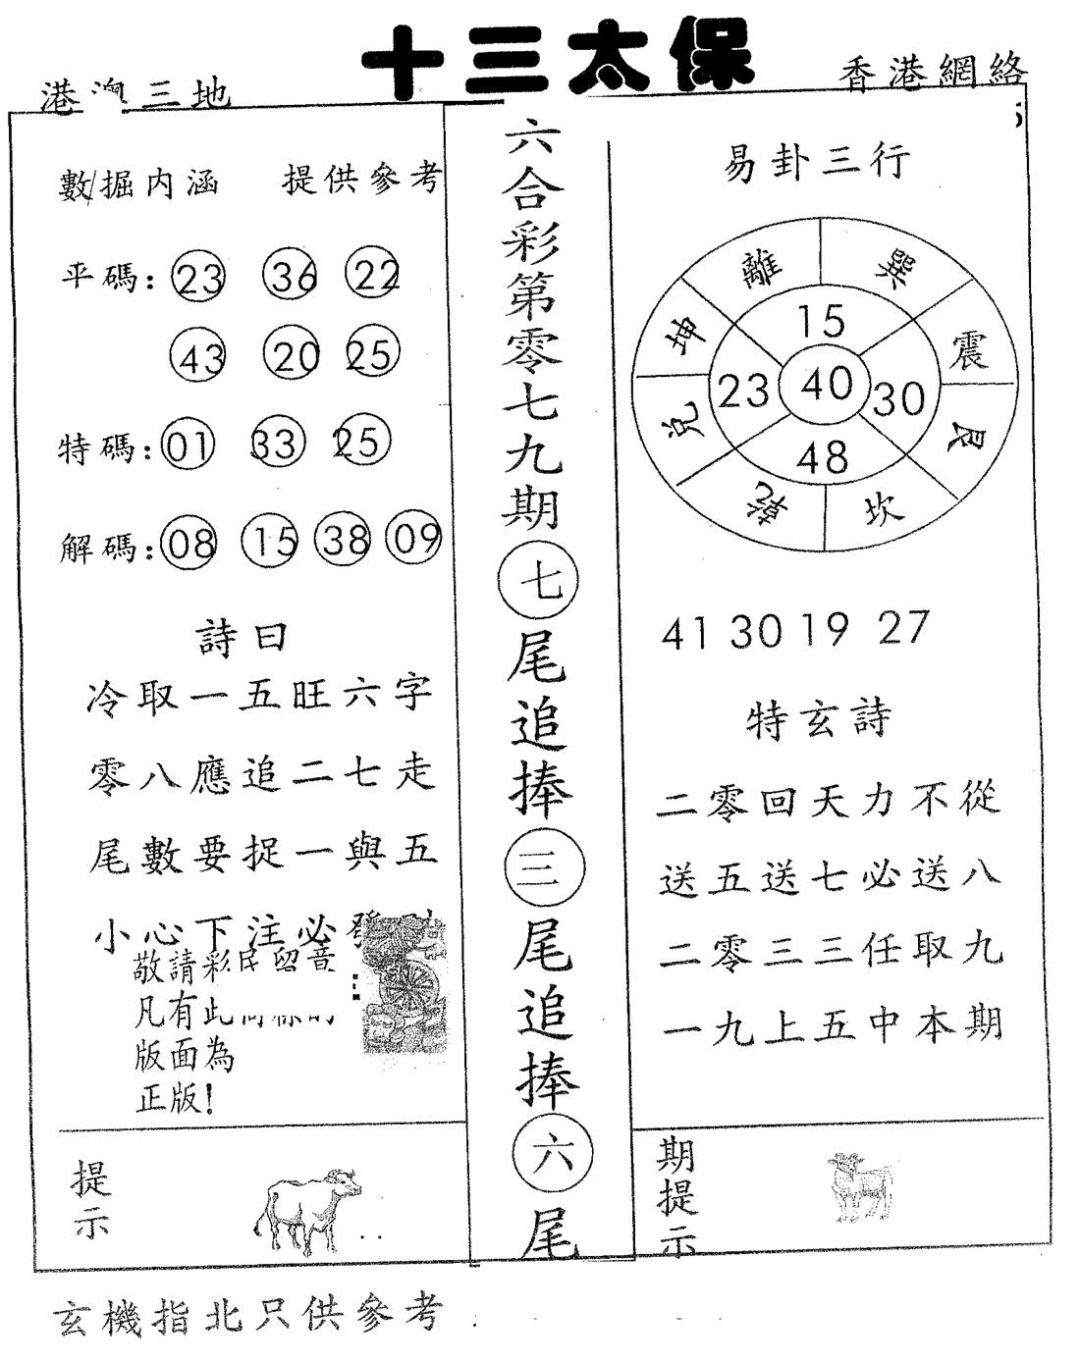 十三太保
港澳三地
香港網絡
數掘内涵 提供參考
平碼：23 36 22
43 20 25
特碼：01 33 25
解碼：08 15 38 09
詩曰
冷取一五旺六字
零八應追二七走
尾數要捉一與五
小心下注必發
敬請彩民留意
凡有此同樣的
版面為
正版！
提示
六合彩第零七九期七尾追捧三尾追捧六尾
易卦三行
離 巽
坤 震
兌 艮
乾 坎
15
23 40 30
48
41 30 19 27
特玄詩
二零回天力不從
送五送七必送八
二零三三任取九
一九上五中本期
期提示
玄機指北只供參考